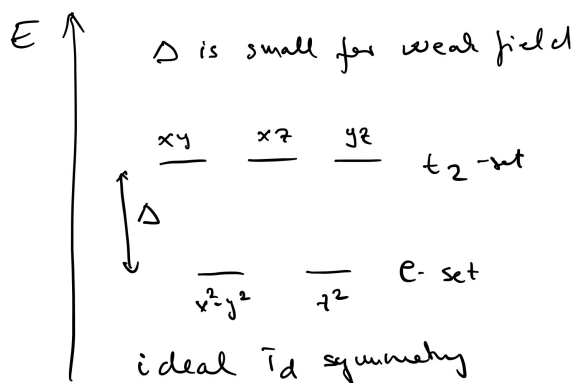 E
Δ is small for weak field
xy xz yz
t2 -set
Δ
e- set
x²-y² z²
ideal Td symmetry